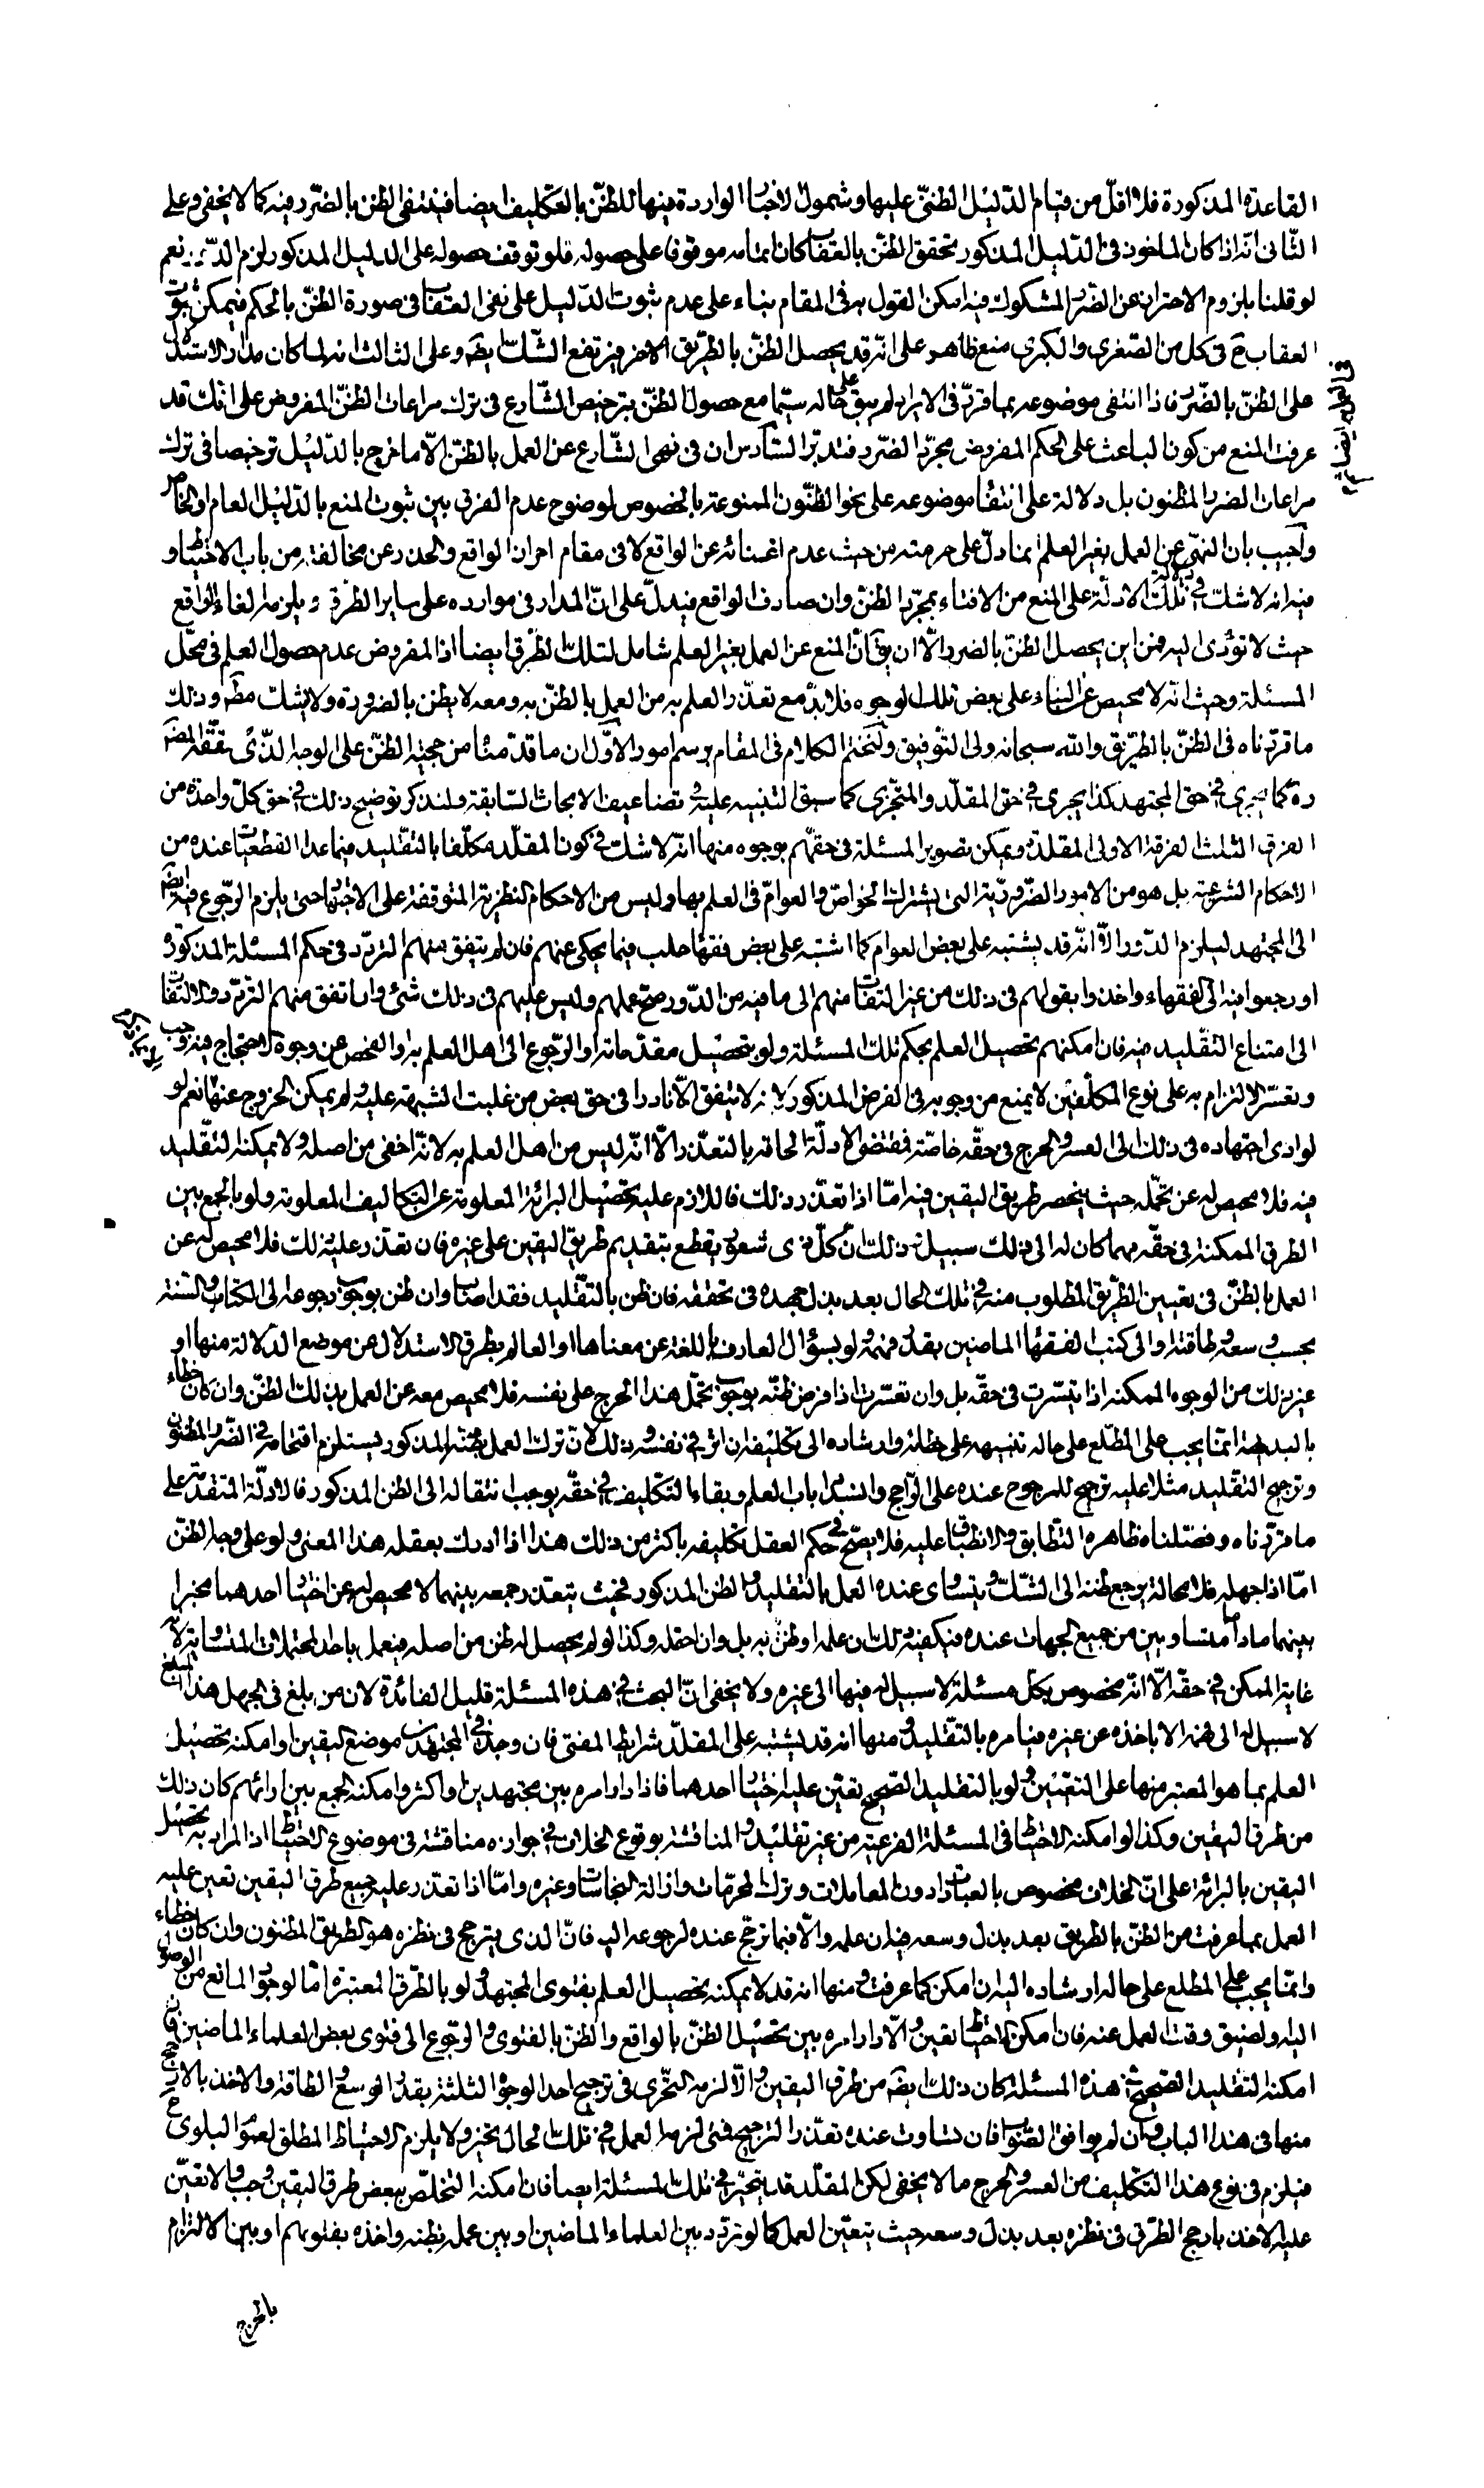 القاعدة المذكورة فلا اقلّ من قيام الدّليل الظنّى عليها وشمول الاخبار الواردة فيها للظنّ بالتكليف ايضا فينتفى الظن بالضّرر فيه كما لا يخفى وعلى
الثّانى انّه اذا كان الملحوظ فى الدّليل المذكور تحقق الظنّ بالعقاب كان تمامه موقوفا على حصوله فلو توقف حصوله على الدليل المذكور لزم الدّور نعم
لو قلنا بلزوم الاحتراز عن الضّرر المشكوك فيه امكن القول به فى المقام بناء على عدم ثبوت الدّليل على نفى العقاب فى صورة الظنّ بالحكم فيمكن ثبوت
العقاب ح فى كل من الصّغرى والكبرى منع ظاهر على انّه قد يحصل الظنّ بالطّريق الاخر فيرتفع الشّك ايضا وعلى الثالث انه لما كان مدار الاستدلال
على الظنّ بالضّرر فاذا انتفى موضوعه بما قرّر فى الايراد لم يبق على حاله سيّما مع حصول الظنّ بترخيص الشّارع فى ترك مراعات الظنّ المفروض على انّك قد
عرفت المنع من كون الباعث على الحكم المفروض مجرّد الضّرر فتدبّر السّادس ان فى نهى الشّارع عن العمل بالظنّ الّا ما خرج بالدّليل ترخيصا فى ترك
مراعات الضرر المظنون بل دلالة على انتفاء موضوعه على نحو الظّنون الممنوعة بالخصوص لوضوح عدم الفرق بين ثبوت المنع بالدّليل العام او الخاص
واجيب بان النّهى عن العمل بغير العلم انما دلّ على حرمته من حيث عدم اغنائه عن الواقع لا فى مقام احراز الواقع والحذر عن مخالفته من باب الاحتياط و
فيه انه لا شك فى دلالة تلك الادلّة على المنع من الافتاء بمجرّد الظنّ وان صادف الواقع فيدلّ على انّ المدار فى موارده على ساير الطّرق ويلزمه الغاء الواقع
حيث لا تؤدّى اليه فمن اين يحصل الظنّ بالضرر الّا ان يق انّ المنع عن العمل بغير العلم شامل لتلك الطّرق ايضا اذا المفروض عدم حصول العلم فى محلّ
المسئلة وحيث انّه لا محيص عن البناء على بعض تلك الوجوه فلا بدّ مع تعذّر العلم به من العمل بالظنّ به ومعه لا يظن بالضرورة ولا يشك مط وذلك
ما قرّرناه فى الظنّ بالطّريق والله سبحانه ولى التّوفيق ولنختم الكلام فى المقام برسم امور الاوّل ان ما قدّمنا من حجيّة الظنّ على الوجه الّذى حقّقه المصنّف
ره كما يجرى فى حق المجتهد كذا يجرى فى حق المقلّد والمتجزى كما سبق التنبيه عليه فى تضاعيف الابحاث السّابقة ولنذكر توضيح ذلك فى حق كلّ واحدة من
الفرق الثلث الفرقة الاولى المقلّدة ويمكن تصوير المسئلة فى حقّهم بوجوه منها انّه لا شك فى كون المقلّد مكلّفا بالتقليد فيما عدا القطعيّات عنده من
الاحكام الشرعيّة بل هو من الامور الضّروريّة التى يشترك الخواصّ والعوامّ فى العلم بها وليس من الاحكام النّظرية المتوقفة على الاجتهاد حتى يلزم الرّجوع فيه ايضا
الى المجتهد ليلزم الدّور الّا انّه قد يشتبه على بعض العوام كما اشتبه على بعض فقهاء حلب فيما يحكى عنهم فان لم يتفق منهم التردّد فى حكم المسئلة المذكورة
او رجعوا فيه الى الفقهاء واخذوا بقولهم فى ذلك من غير التفات منهم الى ما فيه من الدّور صحّ عملهم وليس عليهم فى ذلك شئ وان اتفق منهم التّردّد والالتفات
الى امتناع التّقليد فيه فان امكنهم تحصيل العلم بحكم تلك المسئلة ولو بتحصيل مقدّماته او الرّجوع الى اهل العلم به او الفحص عن وجوه الاحتجاج فيه وجب
وتعسّر الالتزام به على نوع المكلّفين لا يمنع من وجوبه فى الفرض المذكور لانه لا يتفق الّا نادرا فى حق بعض من غلبت الشبهة عليه ولم يمكن الخروج عنها نعم لو
لو ادى اجتهاده فى ذلك الى العسر والحرج فى حقّه خاصّة فمقتضى الادلّة الحاقه بالتعذّر الّا انّه ليس من اهل العلم به لانّه اخفى من اصله ولا يمكنه التّقليد
فيه فلا محيص له عن تحمّله حيث ينحصر طريق اليقين فيه امّا اذا تعذّر ذلك فاللازم عليه تحصيل البرائة المعلومة عن التّكاليف المعلومة ولو بالجمع بين
الطرق الممكنة فى حقّه مهما كان له الى ذلك سبيل وذلك انّ كلّ ذى شعور يقطع بتقديم طريق اليقين على غيره فان تعذّر عليه ذلك فلا محيص له عن
العمل بالظنّ فى تعيين الطّريق المطلوب منه فى تلك الحال بعد بذل جهده فى تحقيقه فان ظن بالتّقليد فقد اصاب وان ظن بوجوب رجوعه الى الكتاب والسّنة
بحسب وسعه وطاقته او الى كتب الفقهاء الماضين بقدر فهمه ولو بسؤال العارف باللغة عن معناها او العالم بطرق الاستدلال عن موضع الدّلالة منها او
غير ذلك من الوجوه الممكنة اذا تيسّرت فى حقّه بل وان تعسّرت اذا فرض ظنّه بوجوب تحمّل هذا الحرج على نفسه فلا محيص معه عن العمل بذلك الظنّ وان كان خطاء
بالبديهة انّما يجب على المطّلع على حاله تنبيهه على خطائه وارشاده الى تكليفه ان اثر فى نفسه وذلك لانّ ترك العمل بظنّه المذكور يستلزم اقتحامه فى الضّرر المظنون
وترجيح التّقليد مثلا عليه ترجيح للمرجوح عنده على الرّاجح وانسداد باب العلم وبقاء التّكليف فى حقّه يوجب انتقاله الى الظن المذكور فالادلّة المتقدّمة على
ما قرّرناه وفصّلناه ظاهرة التّطابق والانطباق عليه فلا يصحّ فى حكم العقل تكليفه باكثر من ذلك هذا اذا ادرك بعقله هذا المعنى ولو على وجه الظنّ
امّا اذا جهله فلا محالة يرجع ظنه الى الشّك ويتساوى عنده العمل بالتقليد والظن المذكور فحيث يتعذّر جمعه بينهما لا محيص له عن اختيار احدهما مخيرا
بينهما ما داما متساويين من جميع الجهات عنده فيكفيه ذلك ان علمه او ظنّ به بل وان احتمله وكذا لو لم يحصل له ظن من اصله فيعمل باحد المحتملات المتساوية لانّه
غاية الممكن فى حقّه الّا انّه مخصوص بكلّ مسئلة لا سبيل له فيها الى غيره ولا يخفى انّ البحث فى هذه المسئلة قليل الفائدة لان من بلغ فى الجهل هذا المبلغ
لا سبيل له الى فهمه الا باخذه عن غيره فيامره بالتّقليد ومنها انه قد يشتبه على المقلّد شرايط المفتى فان وجد فى المجتهدين موضع اليقين او امكنه تحصيل
العلم بما هو المعتبر منها على التّعيين ولو بالتقليد الصّحيح تعيّن عليه اختيار احدهما فاذا دار امره بين مجتهدين او اكثر وامكنه الجمع بين ارائهم كان ذلك
من طرق اليقين وكذا لو امكنه الاحتياط فى المسئلة الفرعيّة من غير تقليد والمناقشة بوقوع الخلاف فى جوازه مناقشة فى موضوع الاحتياط اذ المراد به تحصيل
اليقين بالبرائة على انّ الخلاف مخصوص بالعبادات دون المعاملات وترك المحرّمات وازالة النجاسات وغيره وامّا اذا تعذّر عليه جميع طرق اليقين تعين عليه
العمل بما عرفت من الظنّ بالطّريق بعد بذل وسعه فيه ان علمه والّا فبما ترجّح عنده لرجوعه اليه فانّ الذى يترجح فى نظره هو الطّريق المظنون وان كان خطاء
وانّما يجب على المطلع على حاله ارشاده اليه ان امكن كما عرفت ومنها انه قد لا يمكنه تحصيل العلم بفتوى المجتهد ولو بالطّرق المعتبرة امّا لوجود المانع من الوصول
اليه او لضيق وقت العمل عنه فان امكنه الاحتياط تعيّن والّا دار امره بين تحصيل الظنّ بالواقع والظنّ بالفتوى والرّجوع الى فتوى بعض العلماء الماضين فان
امكنه التقليد الصّحيح فى هذه المسئلة كان ذلك ايضا من طرق اليقين والّا لزمه التحّرى فى ترجيح احد الوجوه الثلثة بقدر الوسع والطاقة والاخذ بالارجح
منها فى هذا الباب وان لم يوافق الصّواب فان تساوت عنده تعذّر الترجيح فى لزم العمل فى تلك الحال تخير ولا يلزم الاحتياط المطلق لعموم البلوى ح
فيلزم فى نوع هذا التّكليف من العسر والحرج ما لا يخفى لكن المقلّد قد يتحيّر فى تلك المسئلة ايضا فان امكنه التخلّص ببعض طرق اليقين وجب والا تعيّن
عليه الاخذ بارجح الطّرق فى نظره بعد بذل وسعه حيث يتعيّن العمل كما لو تردّد بين العلماء الماضين او بين عمله بظنه واخذه بفتويهم او بين الالتزام
بالحرج